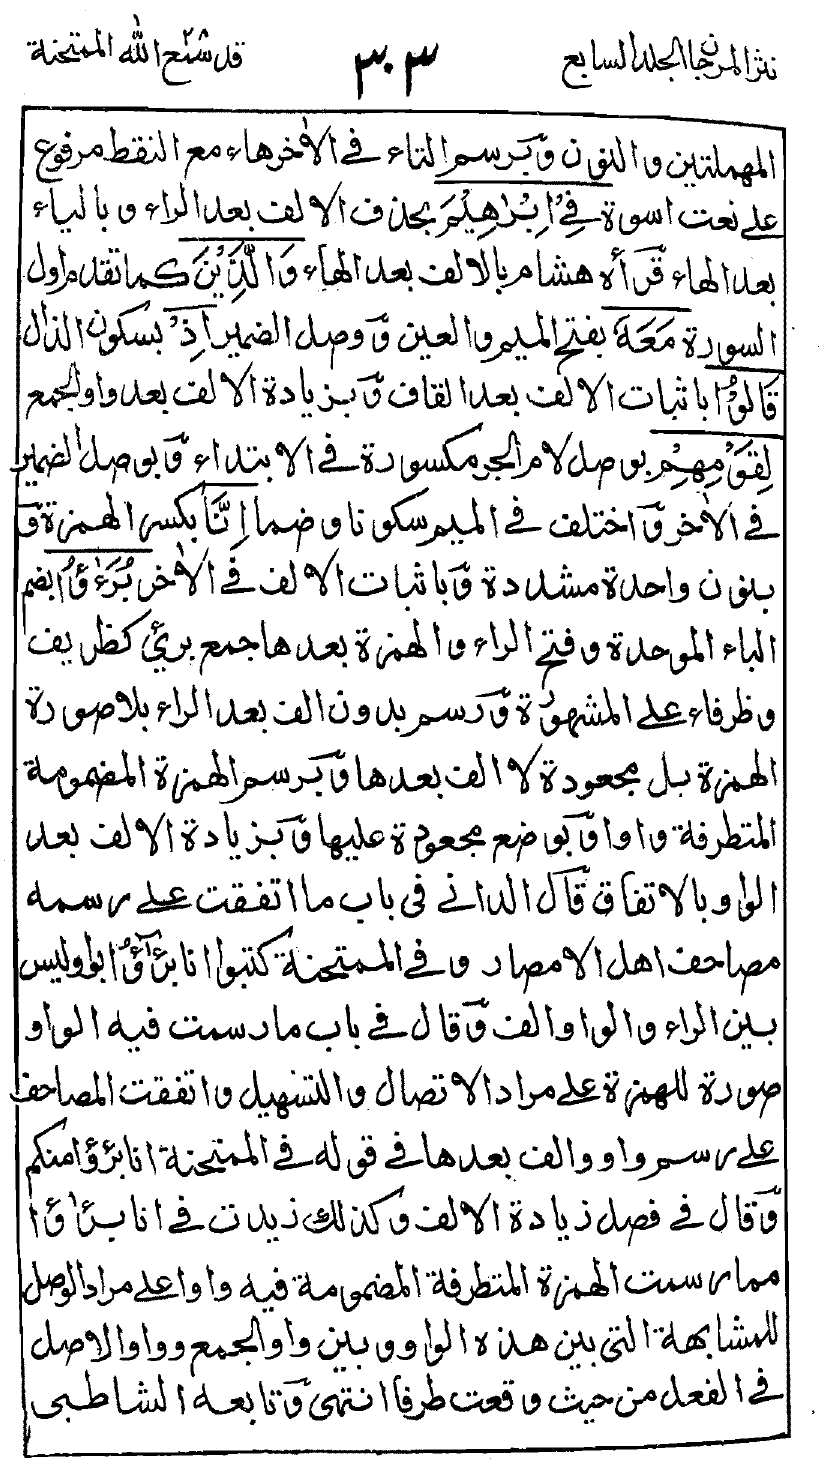 نثر المرجان الجلد السابع
٣٠٣
قد سمع الله ٢٨ الممتحنة
المهملتين والنون وَّبرسم التاء في الاٰخر هاء مع النقط مرفوع
على نعت اسوة فِيْ اِبْرٰهِيْمَ بحذف الالف بعد الراء وبالياء
بعد الهاء قَّرأه هشام بالالف بعد الهاء وَالَّذِيْنَ كما تقدم اول
السورة مَعَهٗ بفتح الميم والعين وَّوصل الضمير اِذْ بسكون الذال
قَالُوْا باثبات الالف بعد القاف وَّبزيادة الالف بعد واو الجمع
لِقَوْمِهِمْ بوصل لام الجر مكسورة في الابتداء وَّبوصل الضمير
في الاٰخر وَّاختلف في الميم سكونا وضما اِنَّا بكسر الهمزة وَّ
بنون واحدة مشددة وَّباثبات الالف في الاٰخر بُرَءٰٓؤُا بضم
الباء الموحدة وفتح الراء والهمزة بعدها جمع برئ كظريف
وظرفاء على المشهورة وَّرسم بدون الف بعد الراء بلا صورة
الهمزة بل مجعودة لا الف بعدها وَّبرسم الهمزة المضمومة
المتطرفة واوا وَّبوضع مجعودة عليها وَّبزيادة الالف بعد
الواو بالاتفاق قَّال الداني في باب ما اتفقت على رسمه
مصاحف اهل الامصار وفي الممتحنة كتبوا انا برءٰٓؤُا بواو وليس
بين الراء والواو الف وَّقال في باب ما رسمت فيه الواو
صورة للهمزة على مراد الاتصال والتسهيل واتفقت المصاحف
على رسم واو والف بعدها في قوله في الممتحنة انا برءٰؤا منكم
وَّقال في فصل زيادة الالف وكذلك زيدت في انا برءٰؤا
مما رسمت الهمزة المتطرفة المضمومة فيه واوا على مراد الوصل
للمشابهة التي بين هذه الواو وبين واو الجمع وواو الاصل
في الفعل من حيث وقعت طرفا انتهى وَّتابعه الشاطبى